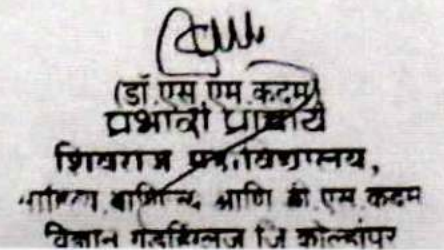 (डॉ. एस. एम. कदम)
प्रभारी प्राचार्य
शिवराज महाविद्यालय,
आणि डी. एस. कदम
विज्ञान गडहिंग्लज जि कोल्हापूर